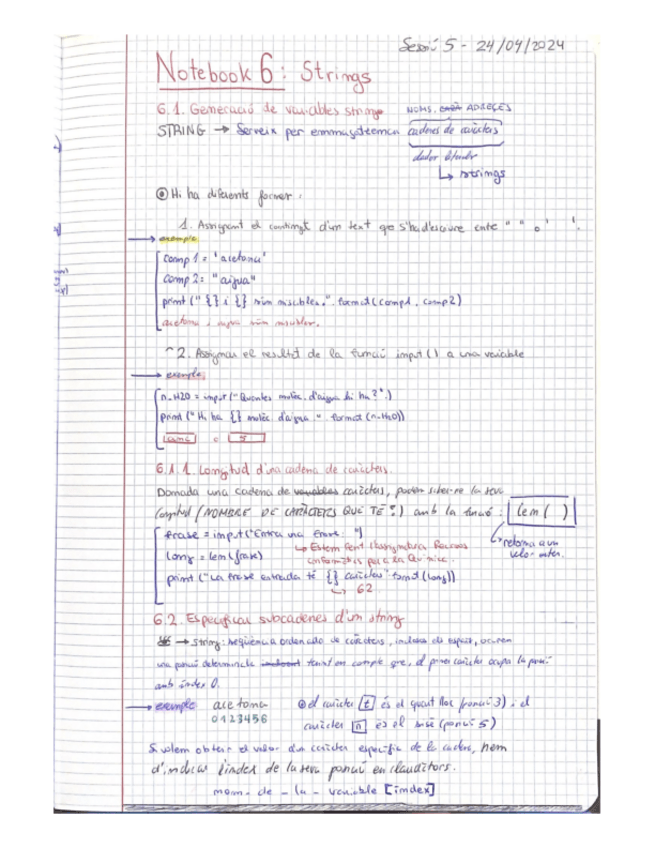 Sessió 5 - 24/04/2024
Notebook 6: Strings
6.1. Generació de variables strings NOMS, ADRECES
STRING → Serveix per emmagatzemar cadenes de caràcters
↳ strings
Hi ha diferents formes:
1. Assignant el contingut d'un text que s'ha d'escriure entre " " o ' '.
→ exemple
comp 1 = 'acetona'
comp 2 = "aigua"
print ("{} i {} són miscibles.". format (comp1, comp2)
acetona i aigua són miscibles.
2. Assignar el resultat de la funció input () a una variable
→ exemple:
n_H2O = input ("Quantes molèc. d'aigua hi ha?".)
Print ("Hi ha {} molèc d'aigua". format (n_H2O))
o 5
6.1.1. Longitud d'una cadena de caràcters.
Donada una cadena de variables caràcters, podem saber-ne la seva
longitud (NOMBRE DE CARÀCTERS QUE TÉ) amb la funció: len ( )
frase = input ("Entra una frase: ") ↳ retorna a un
↳ Estem fent l'assignatura Recursos valor enter.
long = len (frase) informàtics per a la Química.
print ("La frase entrada té {} caràcters" format (long))
↳ 62
6.2. Especificar subcadenes d'un string
→ String: seqüència ordenada de caràcters, inclosos els espais, ocupen
una posició determinada tenint en compte que, el primer caràcter ocupa la posició
amb índex 0.
→ exemple acetona el caràcter t és el quart lloc (posició 3) i el
0123456 caràcter n és el sisè (posició 5)
Si volem obtenir el valor d'un caràcter específic de la cadena, hem
d'indicar l'índex de la seva posició en claudàtors.
nom_de_la_variable [index]